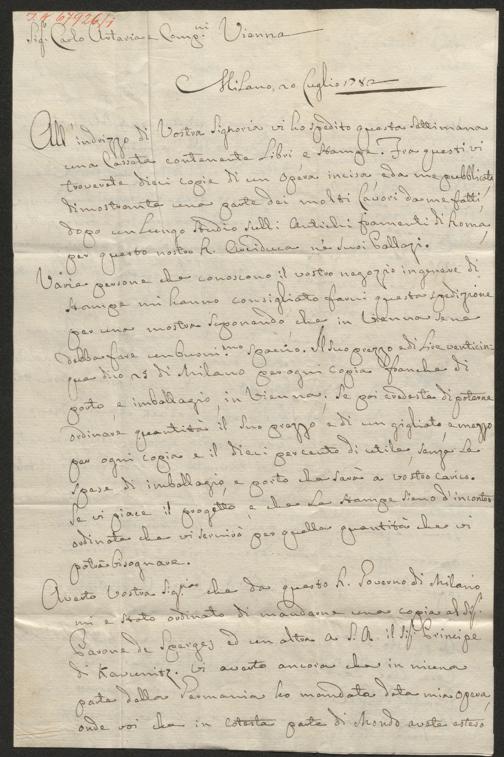 I.N 67926/1
Sig.ri Carlo Artaria e Comp.ni Vienna
Milano, 20 Luglio 1782
All'indrizzo di Vostra Signoria vi ho spedito questa settimana
una Cassata contenente Libri e Stampe. Fra questi vi
troverete dieci copie di un Opera incisa, e da me pubblicata
dimostrante una parte dei molti Lavori da me fatti,
dopo un Lungo studio sulli Antichi framenti di Roma,
per questo nostro R. Arciduca ne suoi Pallazi.
Varie persone che conoscono il vostro negozio in genere di
stampe mi hanno consigliato farvi questa spedizione
per una mostra suponendo, che in Vienna se ne
debba fare un buon.mo spacio. Il suo prezzo e di Lire venticin
que dico 25 di Milano per ogni copia franche di
porto, e imballagio, in Vienna. Se poi credeste di poterne
ordinare quantità il suo prezzo, e di un gigliato, e mezzo
per ogni copia e il dieci percento di utile, senza le
spese di imballagio, e porto che sarà a vostro carico.
Se vi piace il progetto, e che Le stampe sieno d'incontro
ordinate che vi servirò per quella quantità che vi
potrà bisognare.
Averto Vostra Sig.ria che da questo R. Governo di Milano
mi e stato ordinato di mandarne una copia al Sig.r
Barone de Sperges ed un altra a S.A. il Sig.r Principe
di Kauenitz. Vi averto ancora che in niuna
parte della Germania ho mandata detta mia Opera,
onde voi che in cotesta parte di Mondo avete esteso